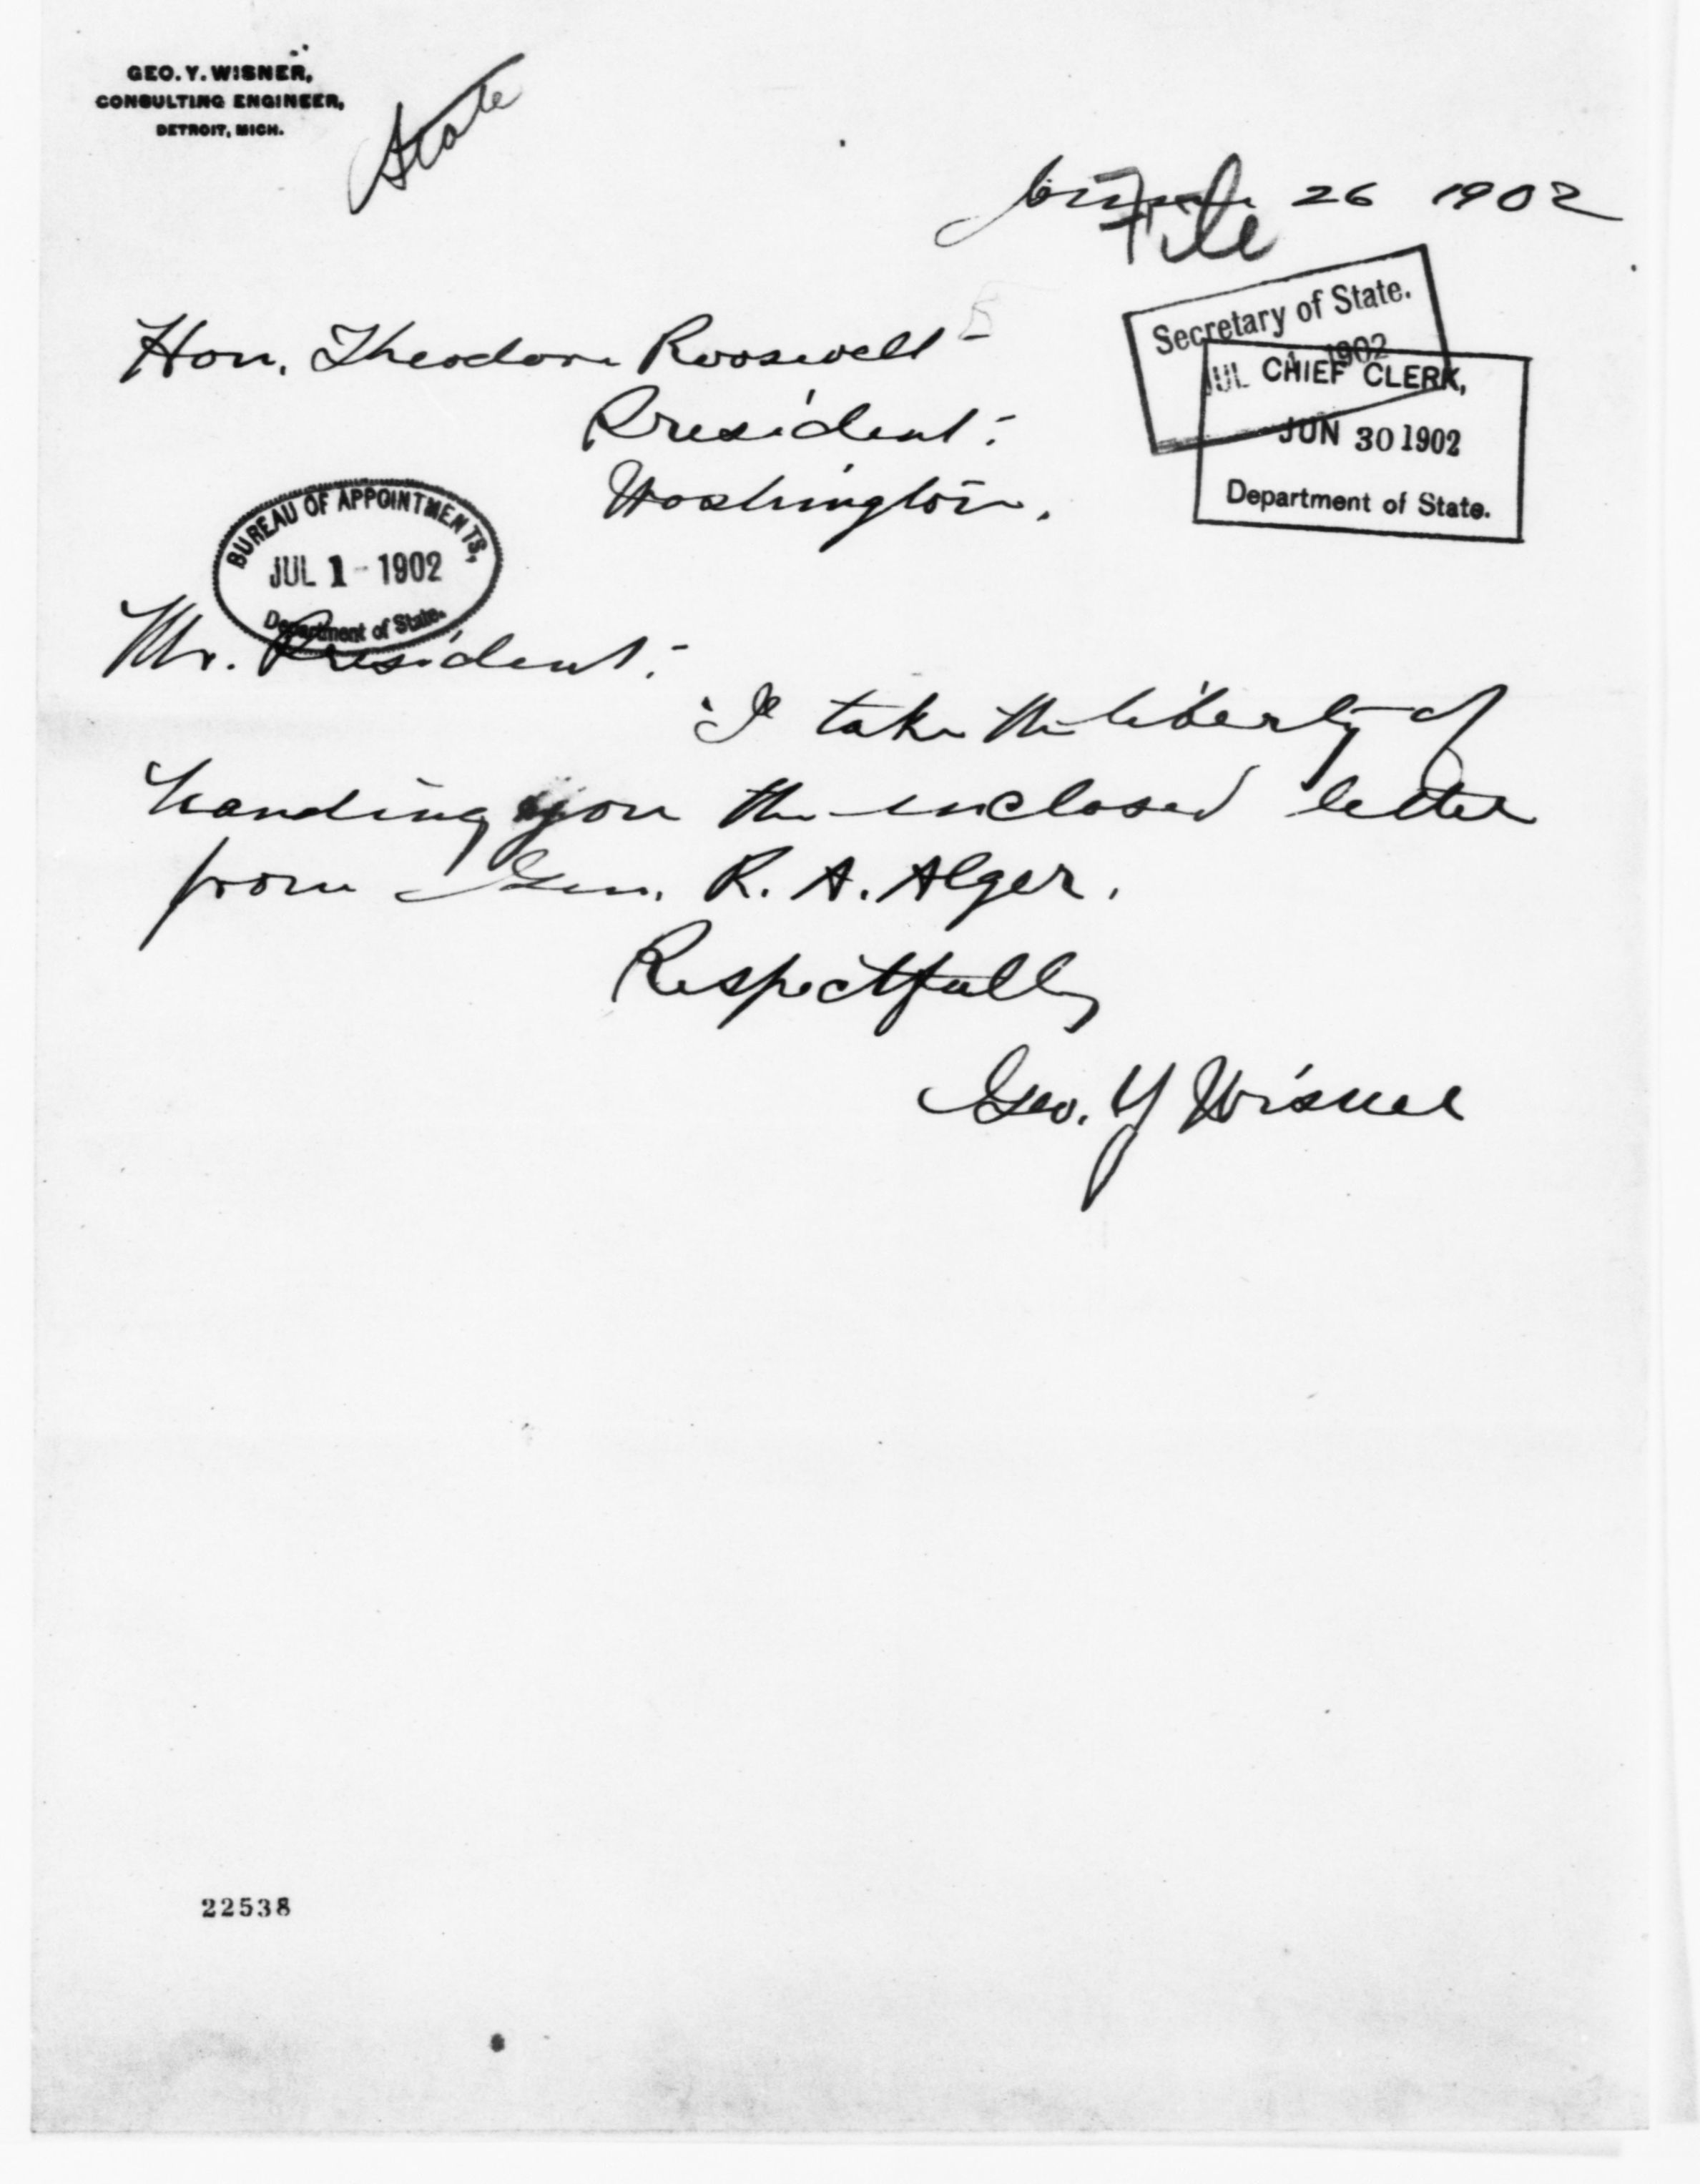 GEO. Y. WISNER,
CONSULTING ENGINEER,
DETROIT, MICH.
State
June 26 1902
File
Secretary of State.
JUL 1 1902
CHIEF CLERK,
JUN 30 1902
Department of State.
Hon. Theodore Roosevelt -
President :
Washington.
BUREAU OF APPOINTMENTS,
JUL 1 - 1902
Department of State.
Mr. President :-
I take the liberty of
handing you the enclosed letter
from Gen. R. A. Alger.
Respectfully
Geo. Y Wisner
22538